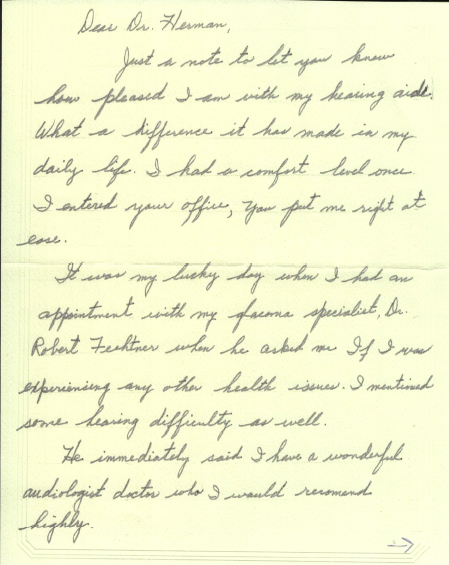 Dear Dr. Herman,
Just a note to let you know
how pleased I am with my hearing aids.
What a difference it has made in my
daily life. I had a comfort level once
I entered your office, you put me right at
ease.
It was my lucky day when I had an
appointment with my glacoma specialist, Dr.
Robert Fechtner when he asked me If I was
experiensing any other health issues. I mentioned
some hearing difficulty as well.
He immediately said I have a wonderful
audiologist doctor who I would recomend
highly.
→